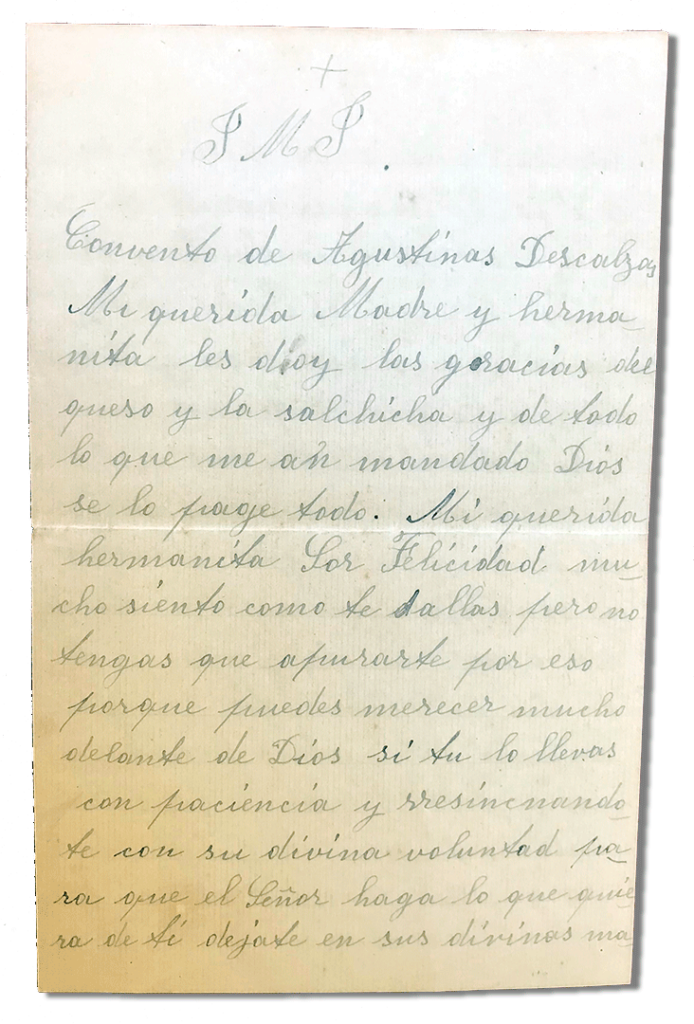 +
J M J.
Convento de Agustinas Descalzas
Mi querida Madre y herma-
nita les dioy las goracias del
queso y la salchicha y de todo
lo que me an mandado Dios
se lo page todo. Mi querida
hermanita Sor Felicidad mu-
cho siento como te allas pero no
tengas que apurarte por eso
porque puedes merecer mucho
delante de Dios si tu lo llevas
con paciencia y rresincnando-
te con su divina voluntad pa-
ra que el Señor haga lo que quie-
ra de ti dejate en sus divinas ma-